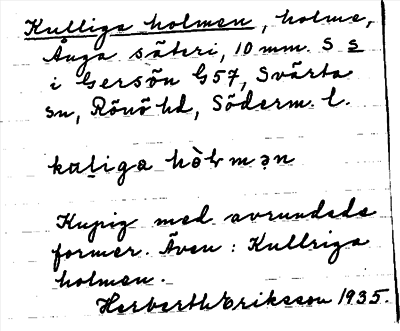 Kulliga holmen, holme,
Ånga säteri, 10 mm. S s
i Gersön G57, Svärta
sn, Rönö hd, Söderm. l.
kuliga hòlmən
Kupig med avrundade
former. Även: Kullriga
holmen.
Herberth Eriksson 1935.